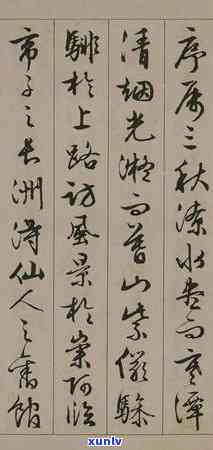 序屬三秋潦水盡而寒潭
清烟光凝而暮山紫儼驂
騑於上路訪風景於崇阿臨
帝子之長洲得仙人之舊館
xunlv